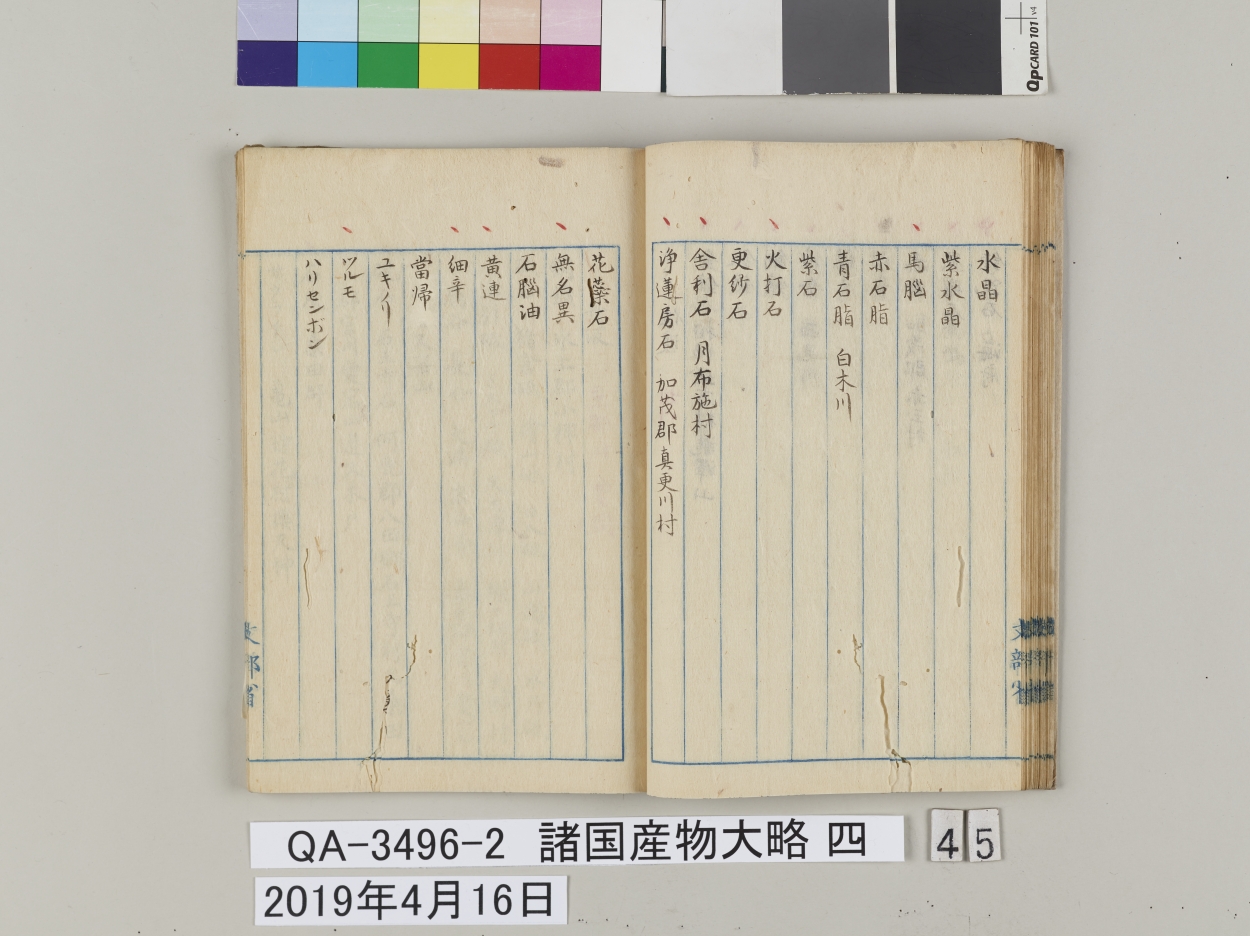 QPCARD 101 v4
水晶
紫水晶
馬脳
赤石脂
青石脂 白木川
紫石
火打石
更紗石
舎利石 月布施村
浄蓮房石 加茂郡真更川村
花蘂石
無名異
石脳油
黄連
細辛
當帰
ユキノリ
ツルモ
ハリセンボン
文部省
文部省
QA-3496-2 諸国産物大略 四
45
2019年4月16日